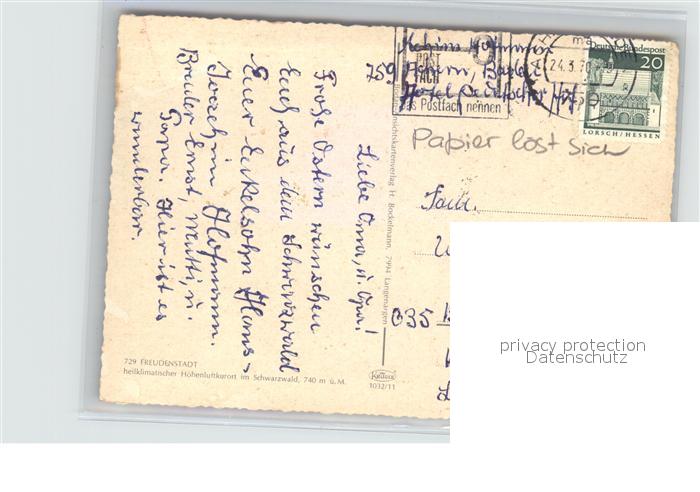 Liebe Oma, u. Opa!
Frohe Ostern wünschen
Euch aus dem Schwarzwald
Euer Enkelsohn Hans-
Joachim Hofmann.
Bruder Ernst, Mutti, u.
Papa. Hier ist es
wunderbar.
729 FREUDENSTADT
heilklimatischer Höhenluftkurort im Schwarzwald, 740 m ü.M.
Ansichtskartenverlag H. Bockelmann, 7994 Langenargen
Krüger
1032/11
Hofmann
759 Achern, Baden
Hotel Deutscher Hof
POST
FACH
das Postfach nennen
24.3.70
Deutsche Bundespost
20
LORSCH/HESSEN
Papier löst sich
Fam.
035
privacy protection
Datenschutz